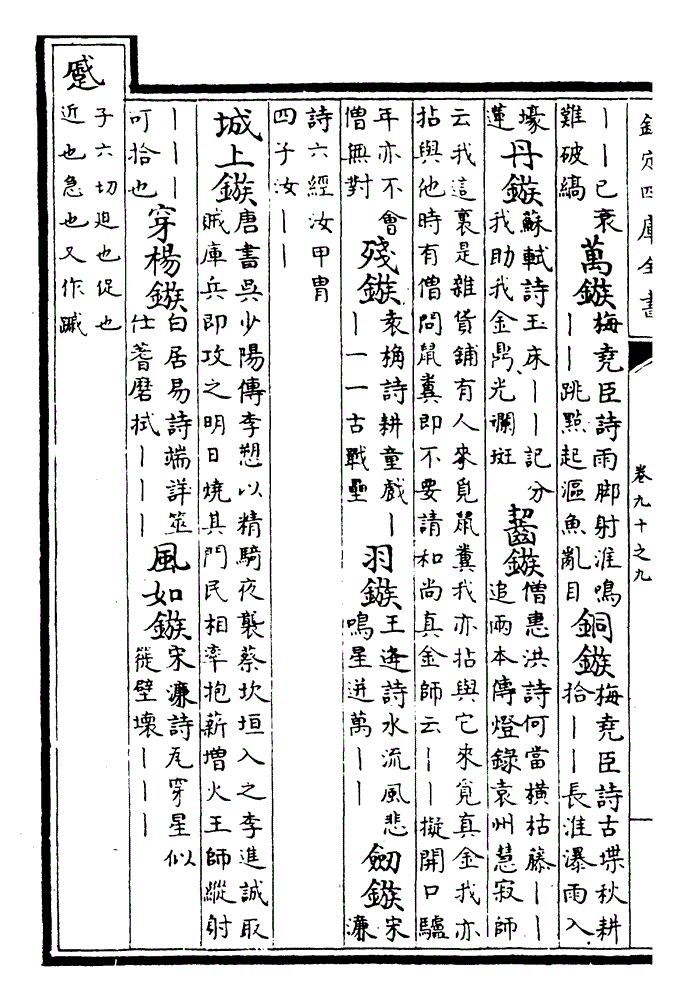 欽定四庫全書
卷九十之九
||已衰
難破縞
萬鏃
梅堯臣詩雨脚射淮鳴
||跳點起漚魚亂目
銅鏃
梅堯臣詩古堞秋耕
拾||長淮瀑雨入
壕
蓮
丹鏃
蘇軾詩玉床||記分
我助我金鼎光斕斑
齧鏃
僧惠洪詩何當橫枯藤||
追兩本傳燈錄袁州慧寂師
云我這裏是雜貨舖有人來覓鼠糞我亦拈與它來覓真金我亦
拈與他時有僧問鼠糞即不要請和尚真金師云||擬開口驢
年亦不會
僧無對
殘鏃
袁桷詩耕童戲|
|一一古戰壘
羽鏃
王逢詩水流風悲
鳴星迸萬||
劒鏃
宋
濂
詩六經汝甲胄
四子汝||
城上鏃
唐書吳少陽傳李愬以精騎夜襲蔡坎垣入之李進誠取
賊庫兵即攻之明日燒其門民相率抱薪增火王師縱射
|||
可拾也
穿楊鏃
白居易詩端詳筮
仕蓍磨拭|||
風如鏃
宋濂詩瓦穿星似
徙壁壞|||
蹙
子六切迫也促也
近也急也又作䠞